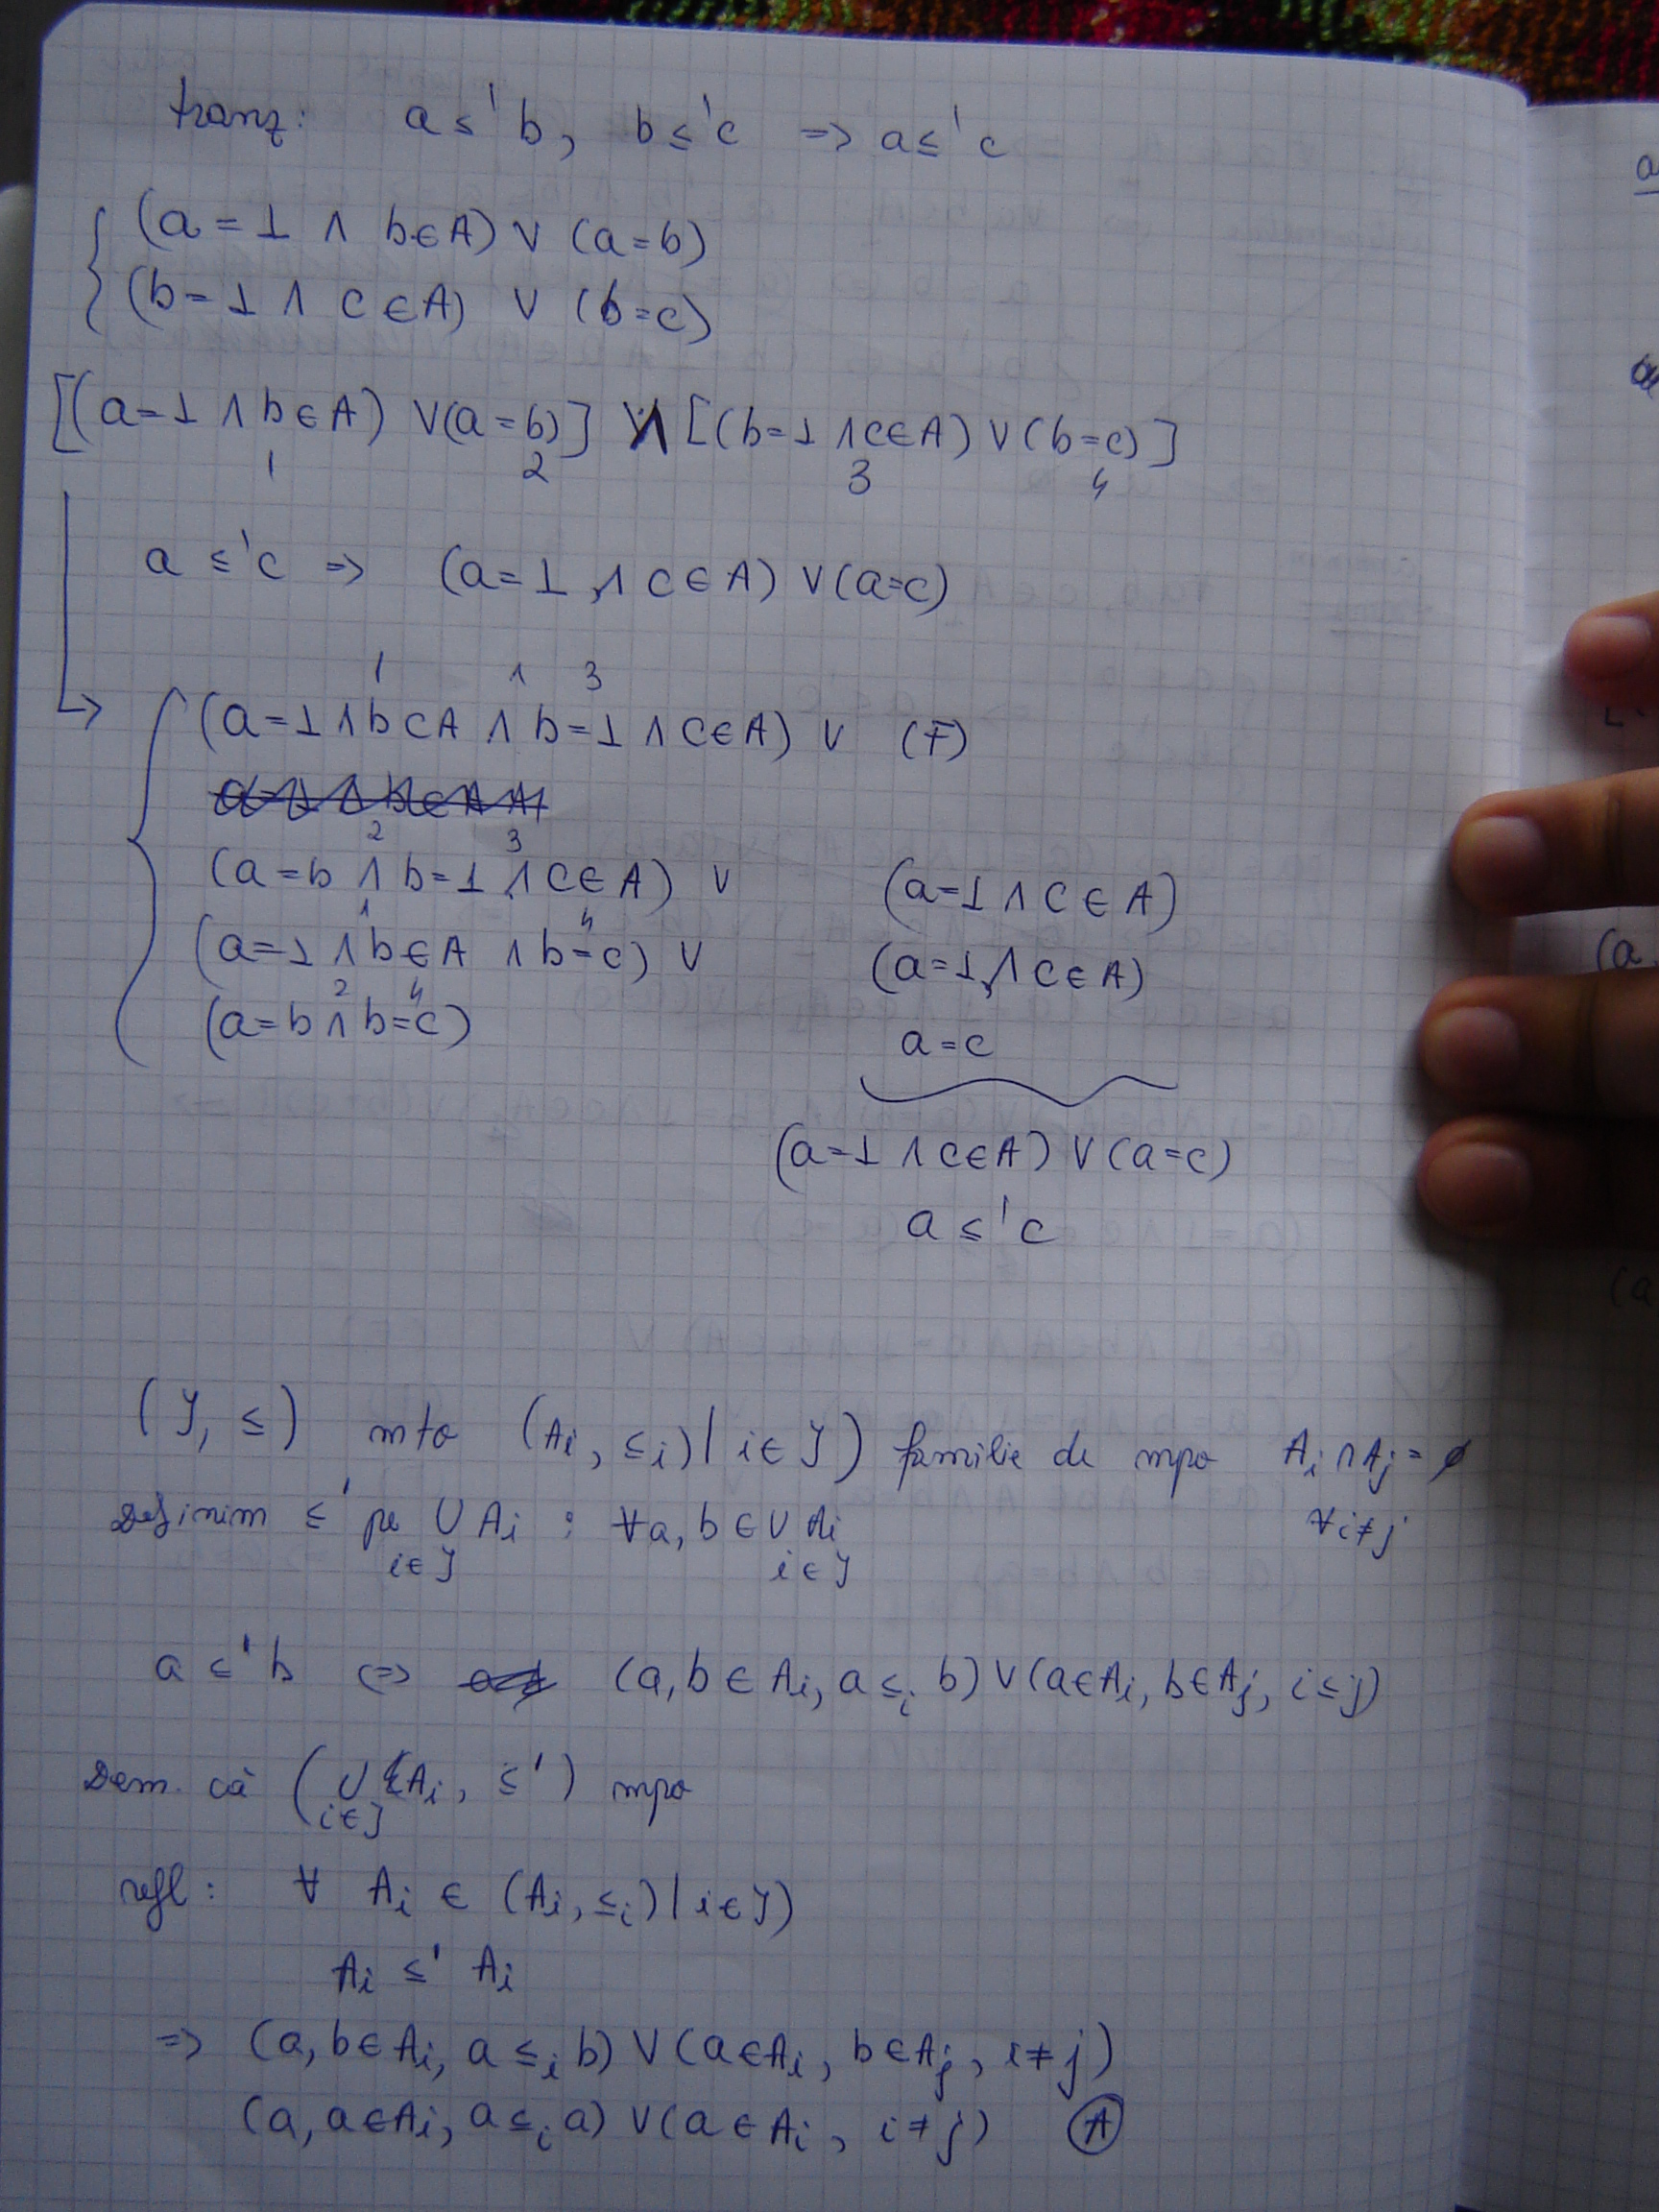 tranz: a ≤' b, b ≤' c => a ≤' c
(a = ⊥ ∧ b ∈ A) ∨ (a = b)
(b = ⊥ ∧ c ∈ A) ∨ (b = c)
[(a = ⊥ ∧ b ∈ A) ∨ (a = b)] ∧ [(b = ⊥ ∧ c ∈ A) ∨ (b = c)]
1 2 3 4
a ≤' c => (a = ⊥ ∧ c ∈ A) ∨ (a = c)
1 ∧ 3
(a = ⊥ ∧ b ⊂ A ∧ b = ⊥ ∧ c ∈ A) ∨ (F)
2 3
(a = b ∧ b = ⊥ ∧ c ∈ A) ∨ (a = ⊥ ∧ c ∈ A)
1 4
(a = ⊥ ∧ b ∈ A ∧ b = c) ∨ (a = ⊥ ∧ c ∈ A)
2 4
(a = b ∧ b = c) a = c
(a = ⊥ ∧ c ∈ A) ∨ (a = c)
a ≤' c
(J, ≤) mto (Ai, ≤i) | i ∈ J) familie de mpo Ai ∩ Aj = ∅
∀ i ≠ j
Definim ≤' pe ∪ Ai : ∀ a, b ∈ ∪ Ai
i ∈ J i ∈ J
a ≤' b <=> (a, b ∈ Ai, a ≤i b) ∨ (a ∈ Ai, b ∈ Aj, i ≤ j)
Dem. că (∪ Ai, ≤') mpo
i ∈ J
refl: ∀ Ai ∈ (Ai, ≤i) | i ∈ J)
Ai ≤' Ai
=> (a, b ∈ Ai, a ≤i b) ∨ (a ∈ Ai, b ∈ Aj, i ≠ j)
(a, a ∈ Ai, a ≤i a) ∨ (a ∈ Ai, i ≠ j) A